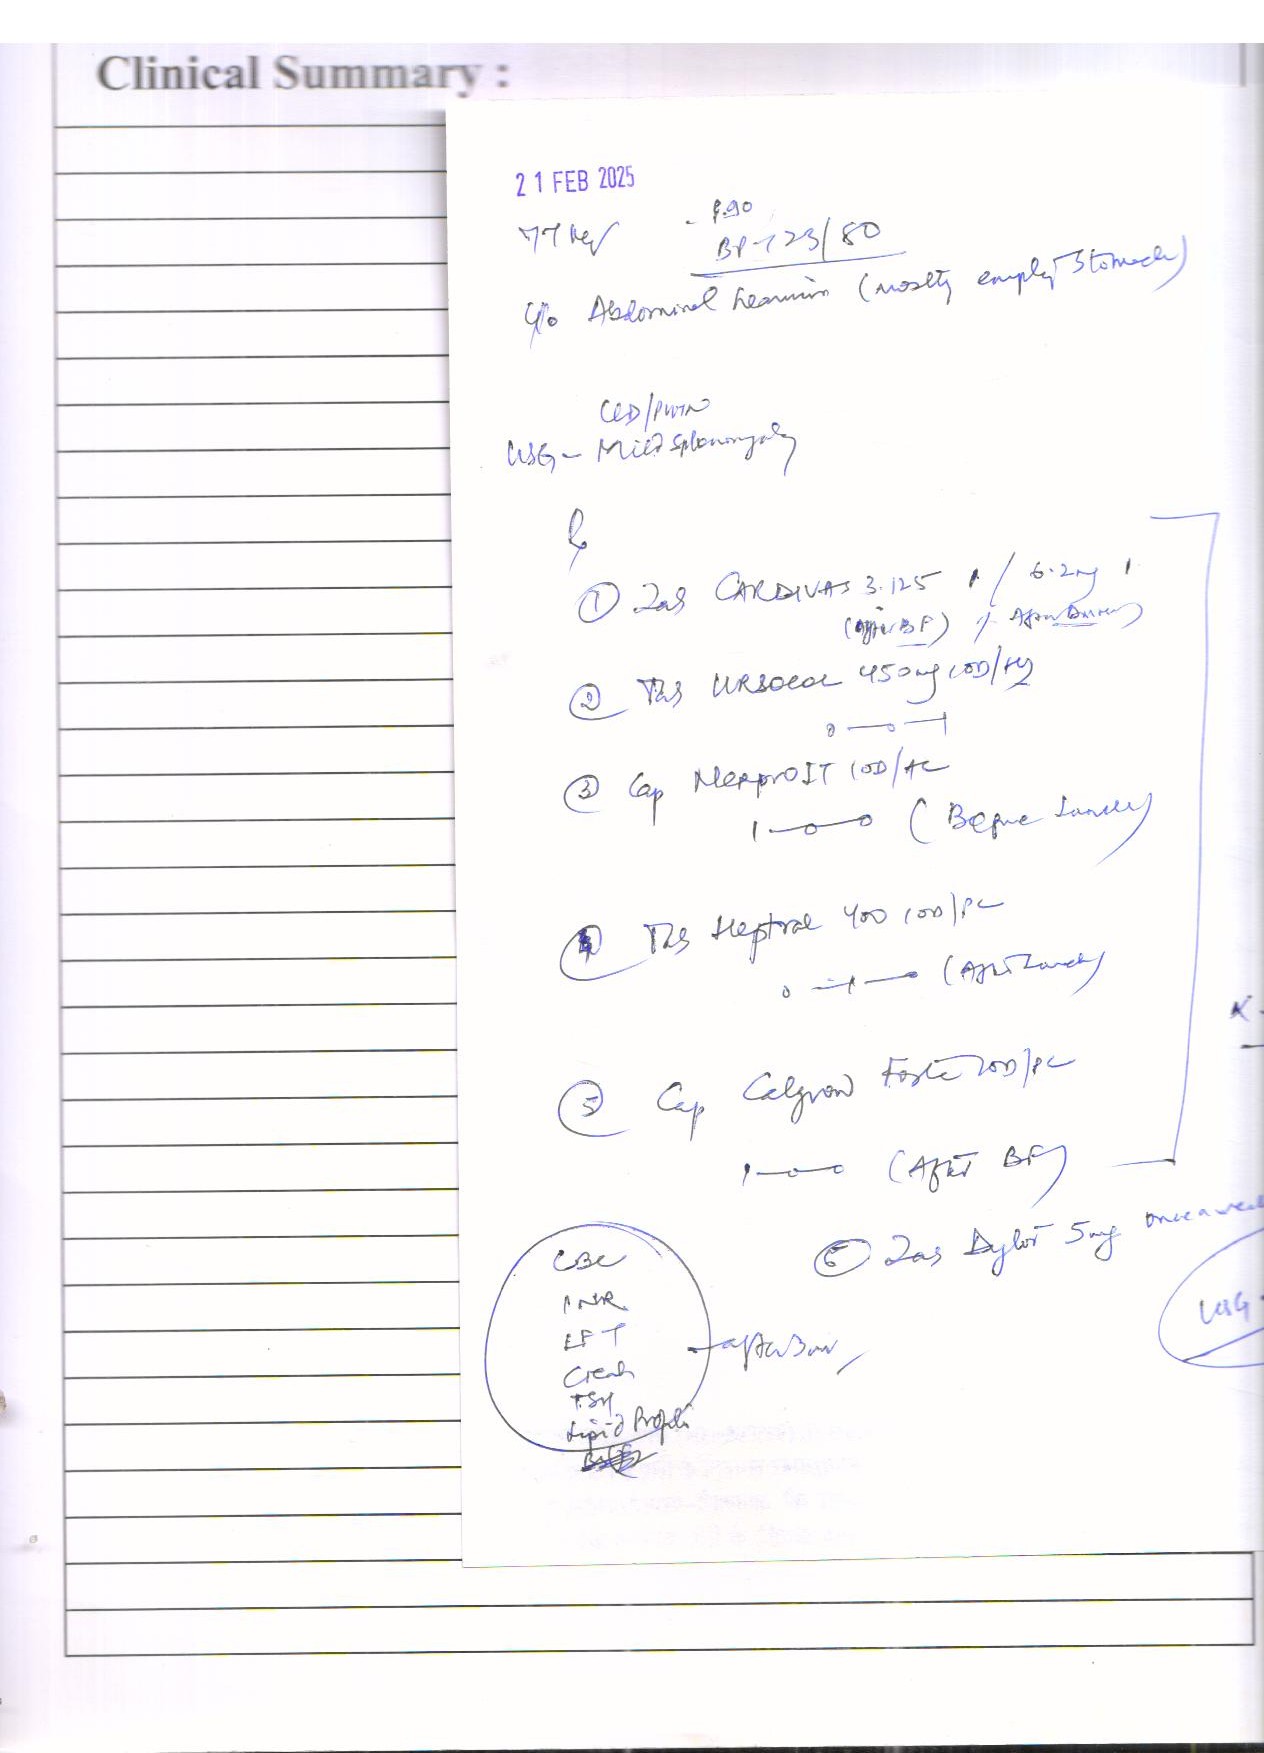 Clinical Summary :
21 FEB 2025
77 kg
P-90
BP-123/80
c/o Abdominal heaviness (mostly empty stomach)
CLD/PHTN
USG - Mild splenomegaly
Rx
① Tab CARDIVAS 3.125 1 / 6.2mg 1
(After BF) / After Dinner)
② Tab URSOCOL 450mg 1OD/HS
0—0—1
③ Cap NexproIT 1OD/AC
1—0—0 (Before
④ Tab Heptral 400 1OD/PC
0—1—0 (After Lunch)
⑤ Cap Calgrow Forte 1OD/PC
1—0—0 (After BF)
⑥ Tab Dytor 5mg once a week
CBC
INR
LFT
Creat
TSH
Lipid Profile
after 3m
USG
K-